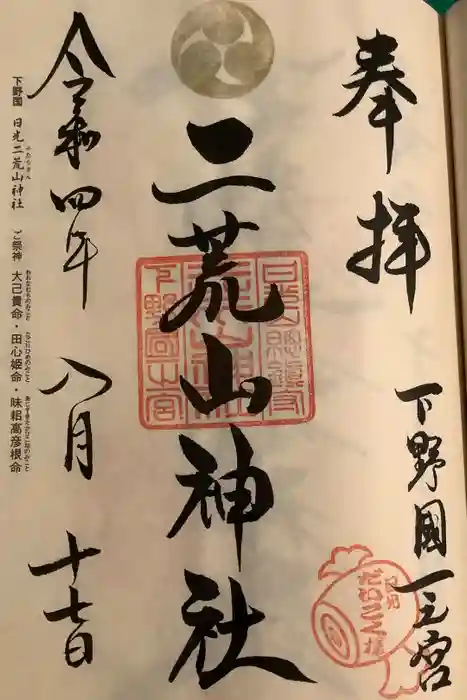 奉拝
下野國一之宮
二荒山神社
日光山総鎮守
下野國一之宮
日光
だいこく様
令和四年 八月 十七日
下野国 日光二荒山神社 ご祭神 大己貴命・田心姫命・味耜高彦根命